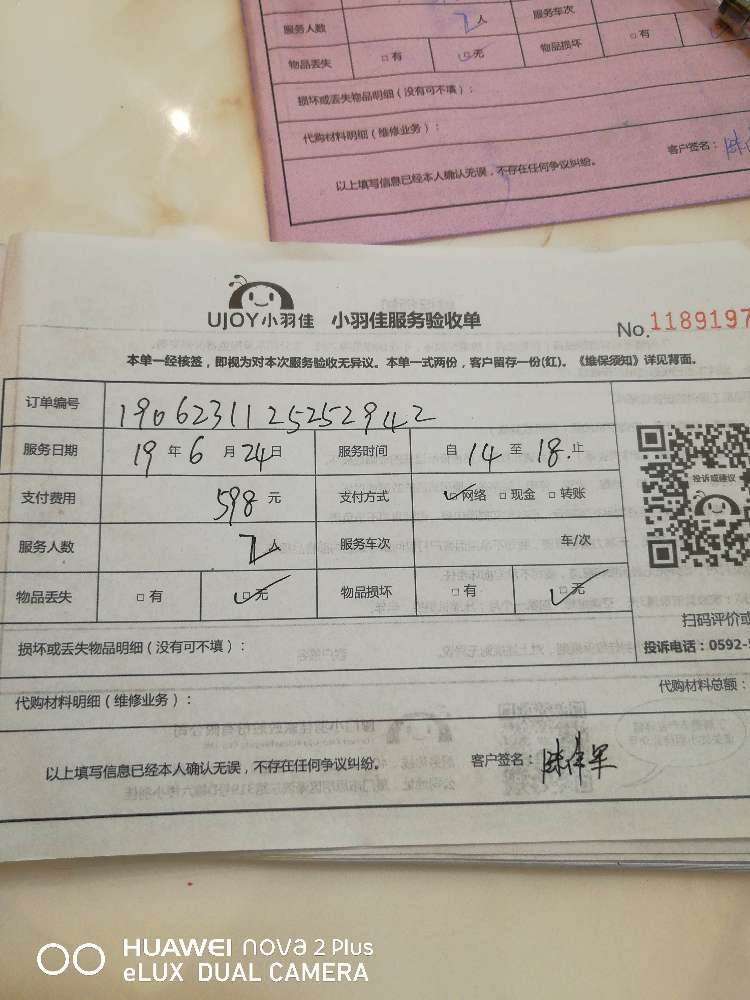 服务人数 2 人 服务车次
物品丢失 □有 □无 物品损坏 □有
损坏或丢失物品明细（没有可不填）：
代购材料明细（维修业务）：
以上填写信息已经本人确认无误，不存在任何争议纠纷。 客户签名：
UJOY小羽佳 小羽佳服务验收单 No.1189197
本单一经核签，即视为对本次服务验收无异议。本单一式两份，客户留存一份(红)。《维保须知》详见背面。
订单编号 1906231125252942
服务日期 19 年 6 月 24 日 服务时间 自 14 至 18. 止
支付费用 598 元 支付方式 □网络 □现金 □转账
投诉或建议
服务人数 2 人 服务车次 车/次
物品丢失 □有 □无 物品损坏 □有 □无
扫码评价或
损坏或丢失物品明细（没有可不填）： 投诉电话：0592-
代购材料明细（维修业务）： 代购材料总额：
以上填写信息已经本人确认无误，不存在任何争议纠纷。 客户签名：陈伟军
HUAWEI nova 2 Plus
eLUX DUAL CAMERA